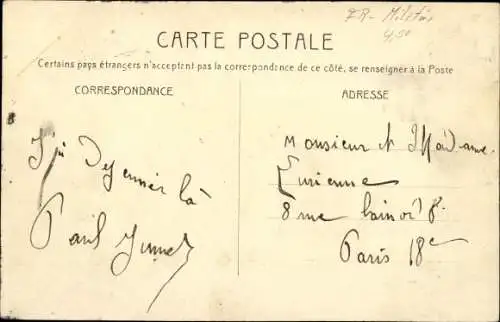 FR - Militär
4,50
CARTE POSTALE
Certains pays étrangers n'acceptent pas la correspondance de ce côté, se renseigner à la Poste
CORRESPONDANCE
ADRESSE
J'ai Dejeuner là
Paul
Monsieur et Madame
8 rue
Paris 18e